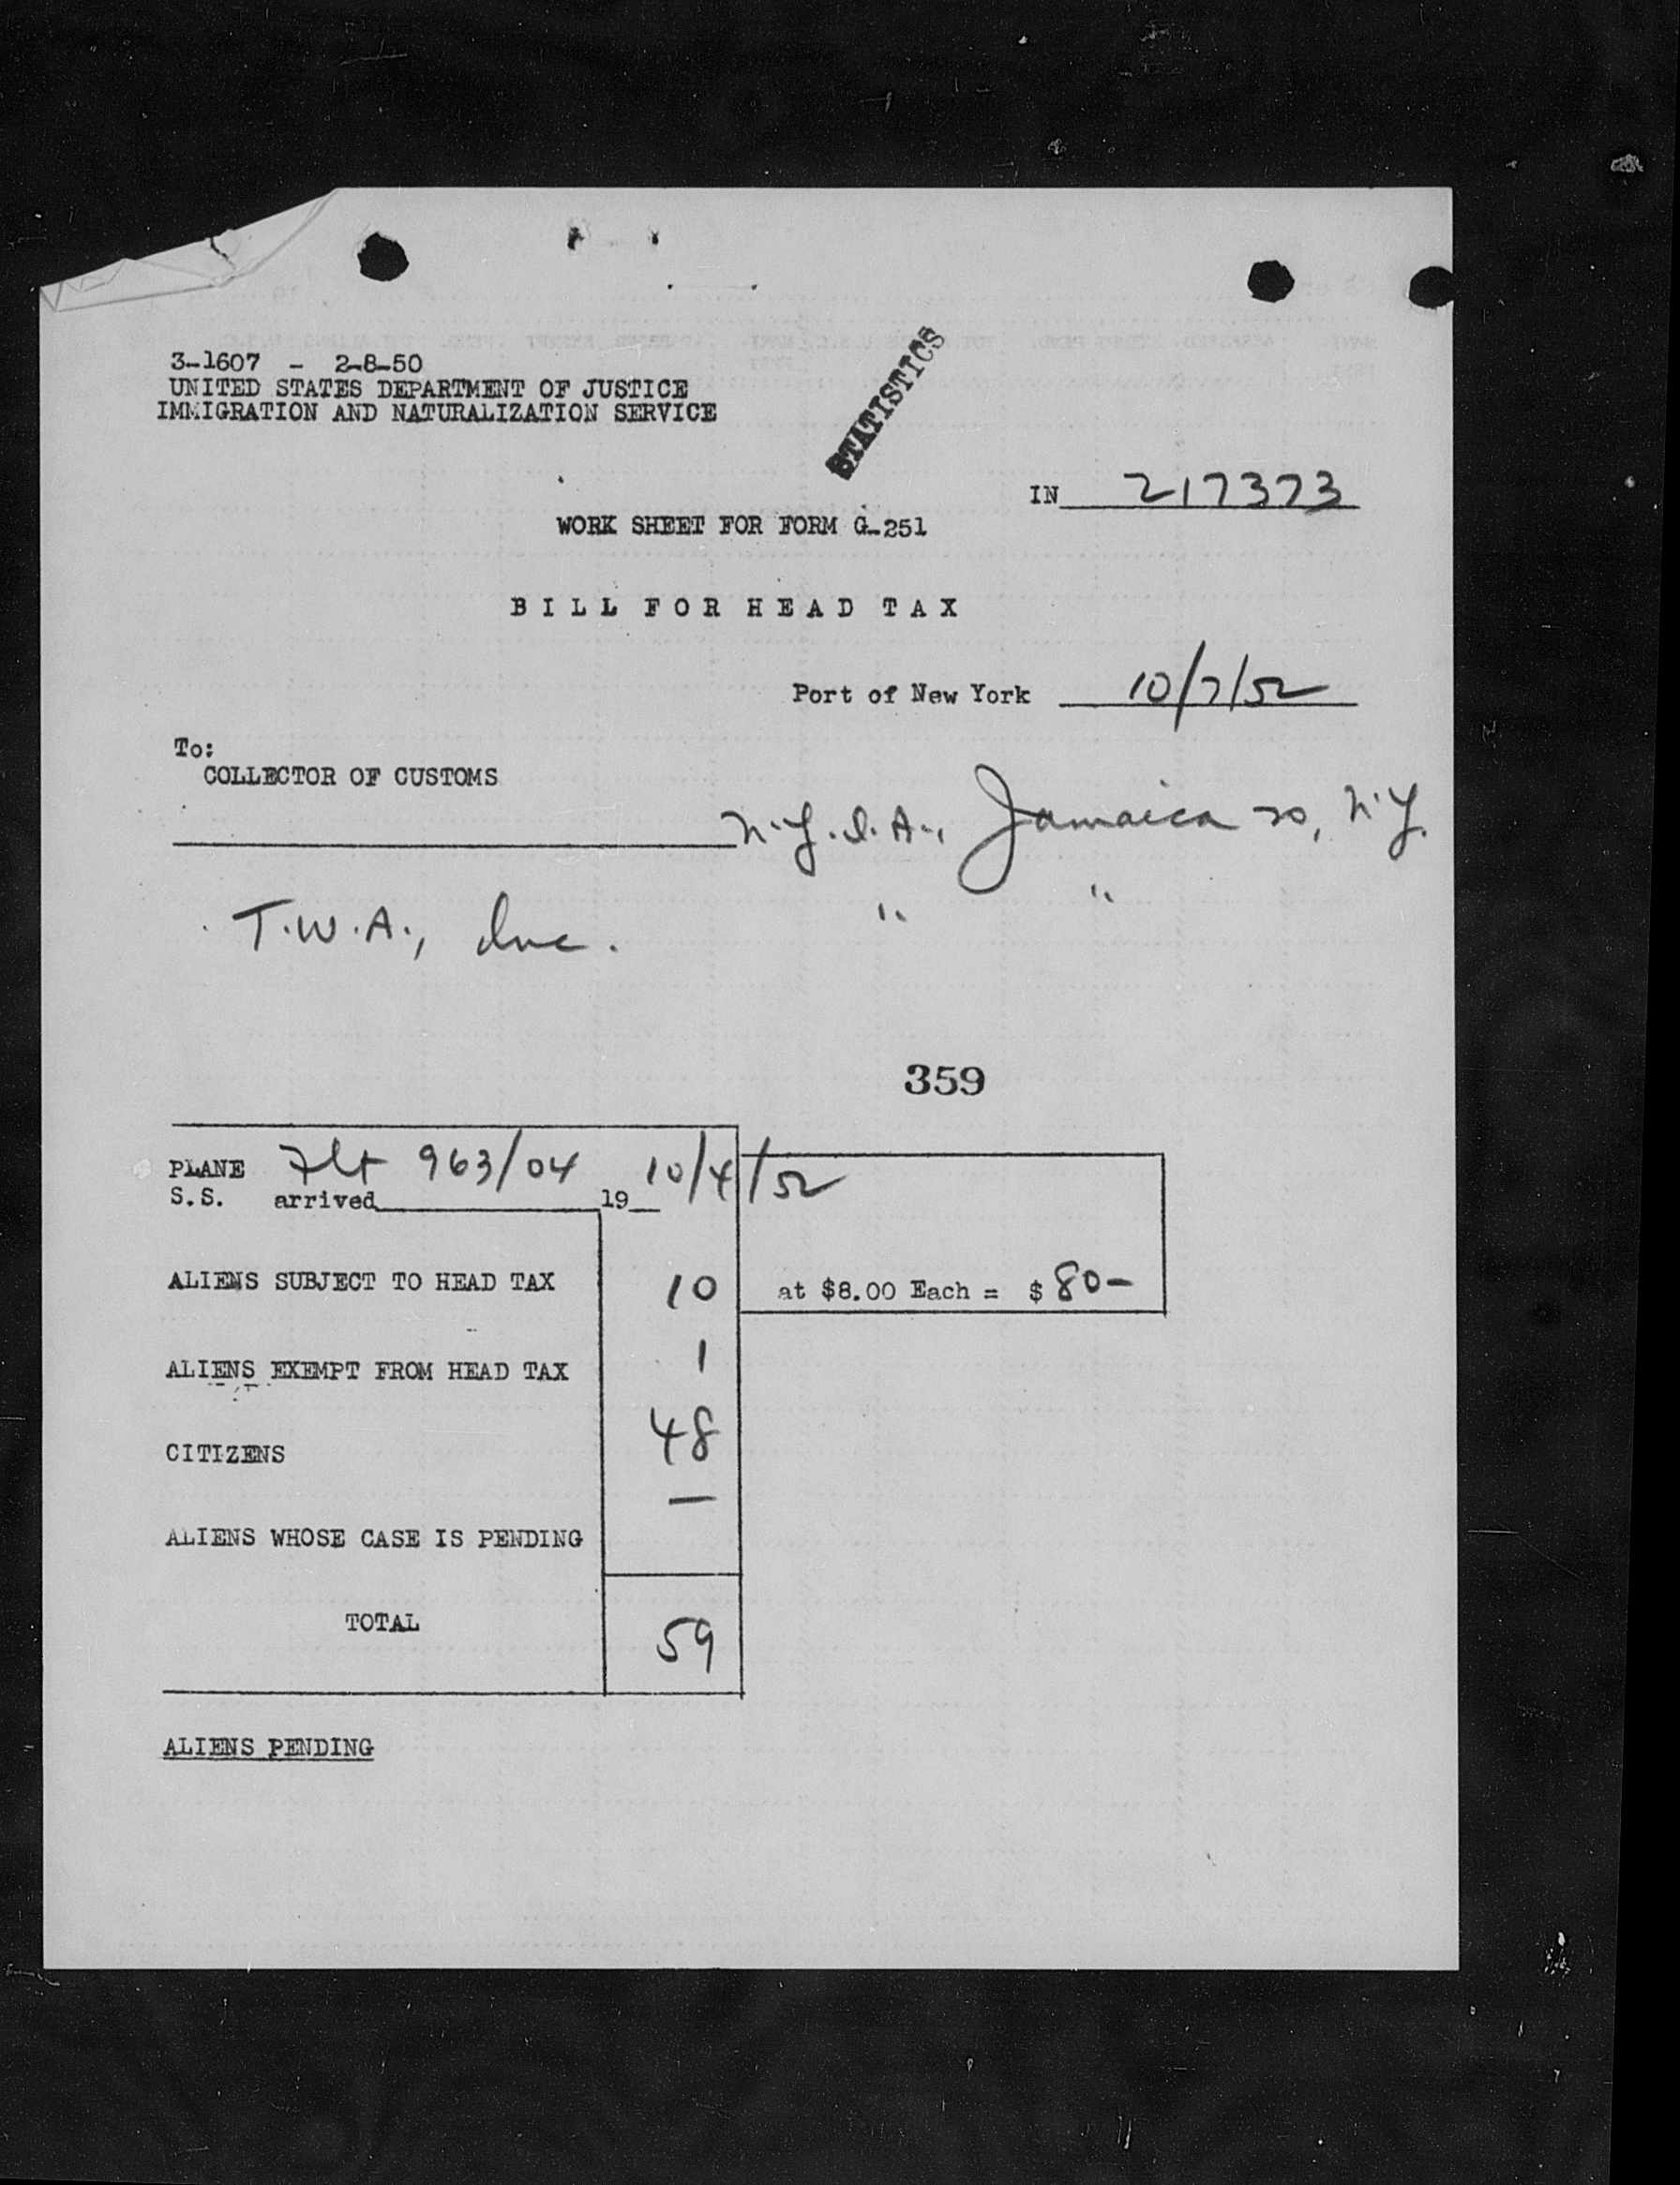 3-1607 - 2-8-50
UNITED STATES DEPARTMENT OF JUSTICE
IMMIGRATION AND NATURALIZATION SERVICE
STATISTICS
IN 217373
WORK SHEET FOR FORM G-251
BILL FOR HEAD TAX
Port of New York 10/7/52
To:
COLLECTOR OF CUSTOMS
N.Y.I.A., Jamaica 30, N.Y.
T.W.A., Inc. " "
359
PLANE Flt 963/04 10/4/52
S.S. arrived 19
ALIENS SUBJECT TO HEAD TAX 10 at $8.00 Each = $ 80-
ALIENS EXEMPT FROM HEAD TAX 1
CITIZENS 48
ALIENS WHOSE CASE IS PENDING —
TOTAL 59
ALIENS PENDING